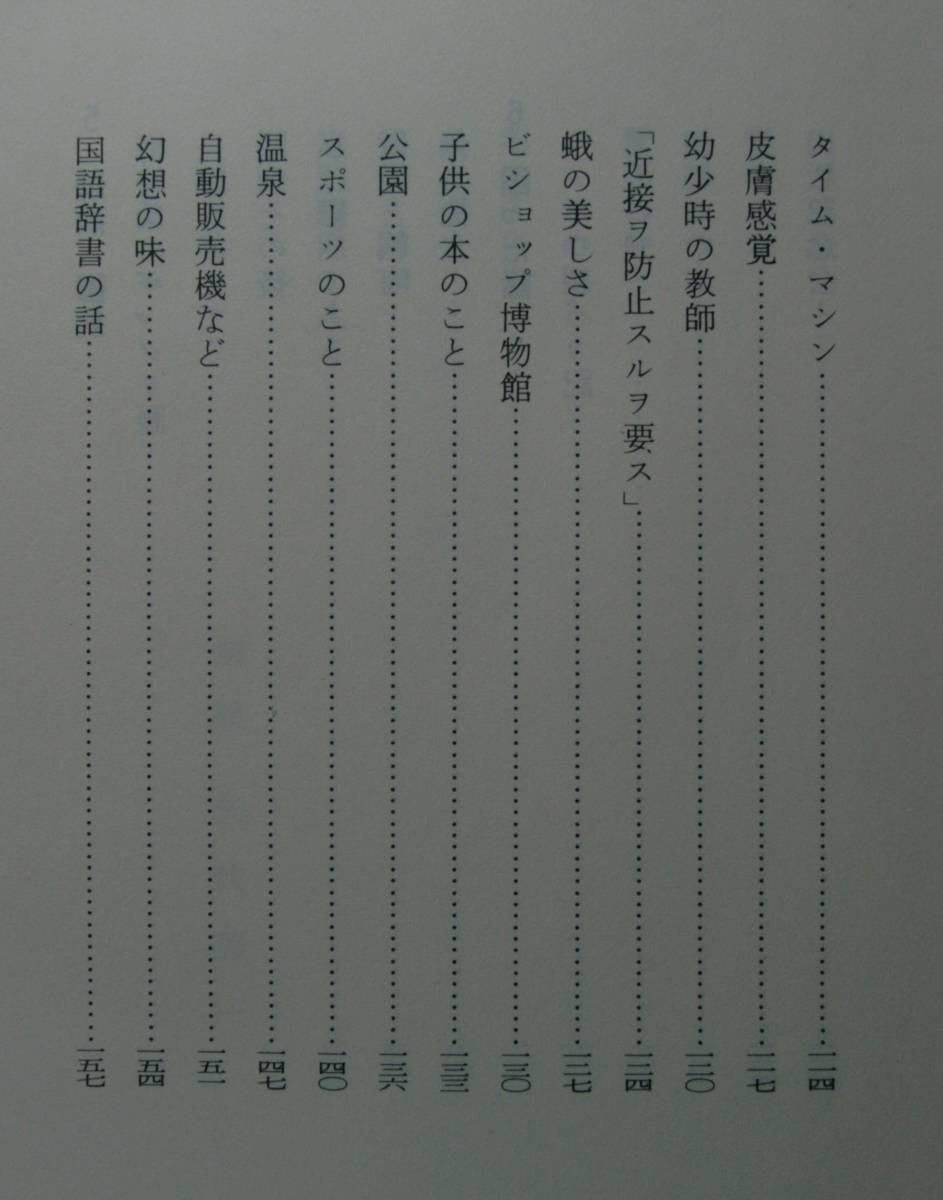 タイム・マシン……一一四
皮膚感覚……一一七
幼少時の教師……一二〇
「近接ヲ防止スルヲ要ス」……一二四
蛾の美しさ……一二七
ビショップ博物館……一三〇
子供の本のこと……一三三
公園……一三六
スポーツのこと……一四〇
温泉……一四七
自動販売機など……一五一
幻想の味……一五四
国語辞書の話……一五七